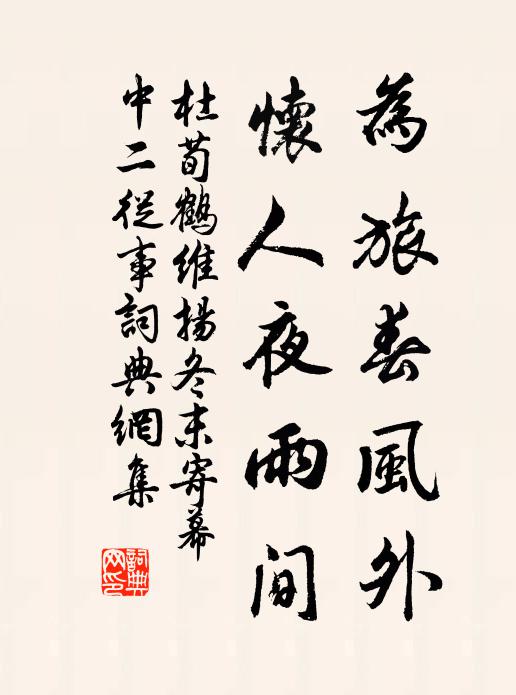 為旅春風外
懷人夜雨间
杜荀鶴維揚冬末寄幕
中二從事詞典網集
詞典
网印